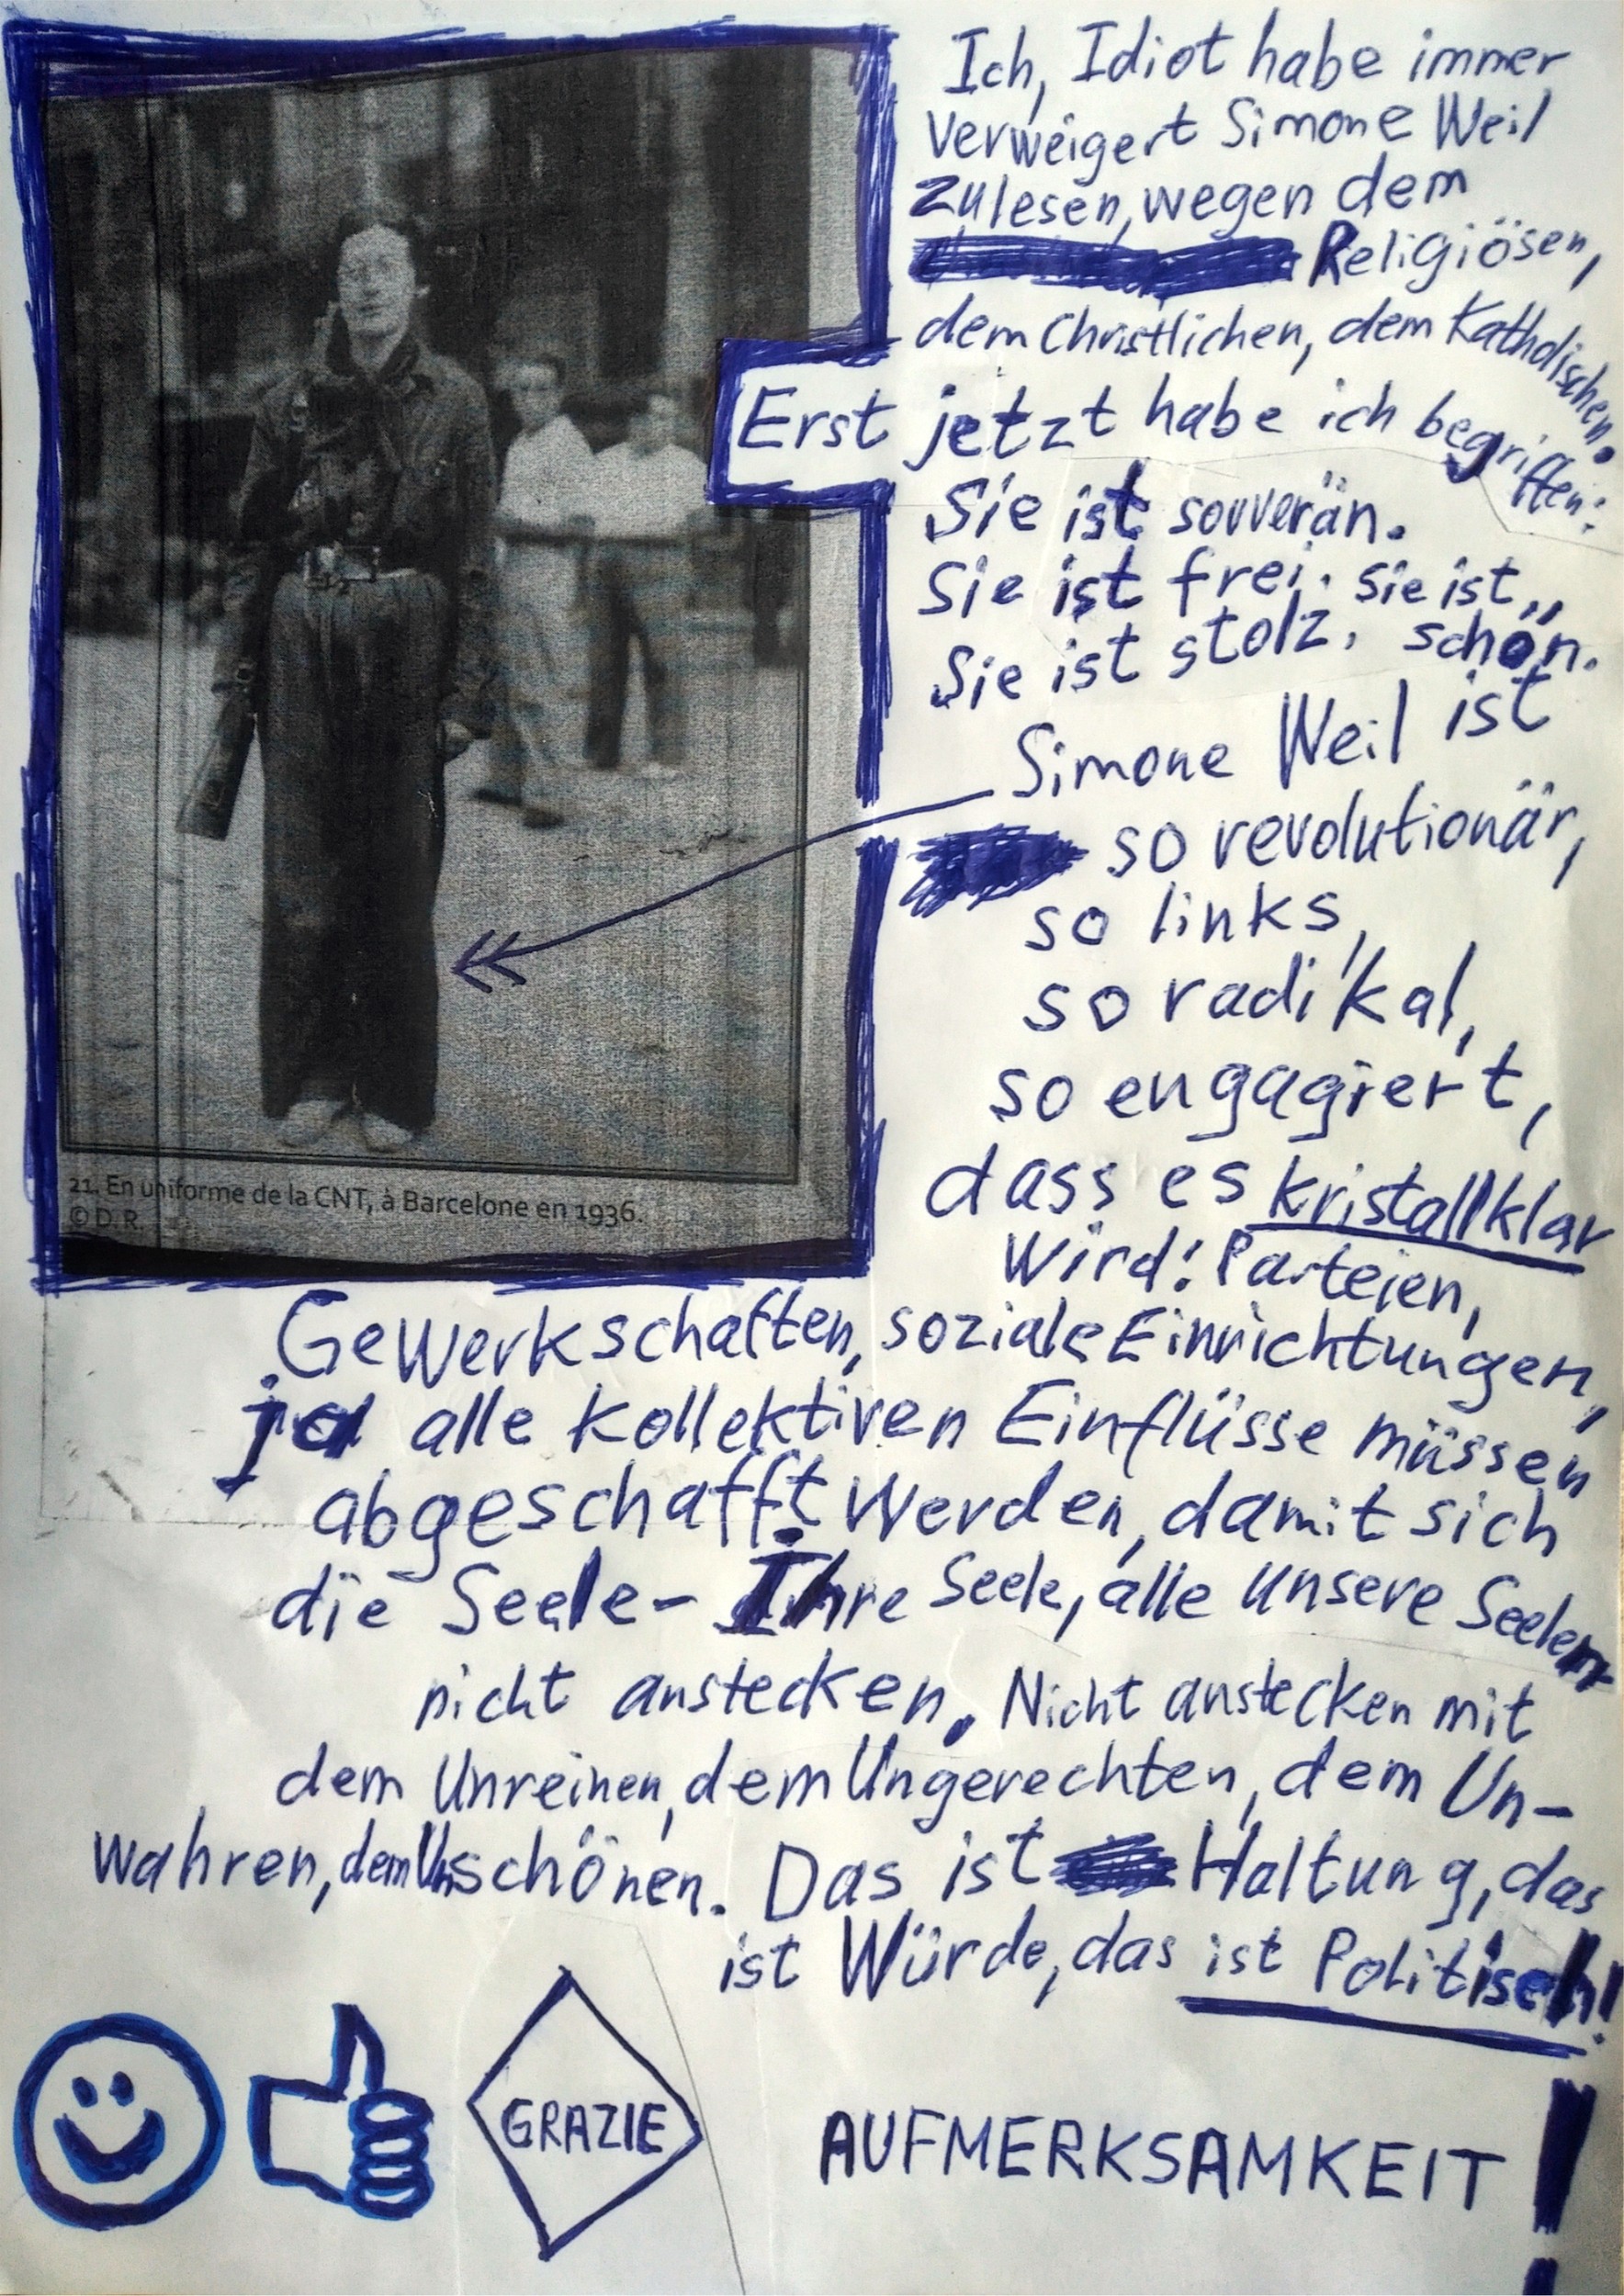 Ich, Idiot habe immer
verweigert Simone Weil
zu lesen, wegen dem
Religiösen,
dem Christlichen, dem Katholischen.
Erst jetzt habe ich begriffen:
Sie ist souverän.
Sie ist frei. Sie ist
Sie ist stolz. schön.
Simone Weil ist
so revolutionär,
so links,
so radikal,
so engagiert,
dass es kristallklar
wird: Parteien,
Gewerkschaften, soziale Einrichtungen,
ja alle kollektiven Einflüsse müssen
abgeschafft werden, damit sich
die Seele - Ihre Seele, alle unsere Seelen
nicht anstecken. Nicht anstecken mit
dem Unreinen, dem Ungerechten, dem Un-
wahren, dem Unschönen. Das ist Haltung, das
ist Würde, das ist Politisch!
21. En uniforme de la CNT, à Barcelone en 1936.
© D. R.
GRAZIE
AUFMERKSAMKEIT!